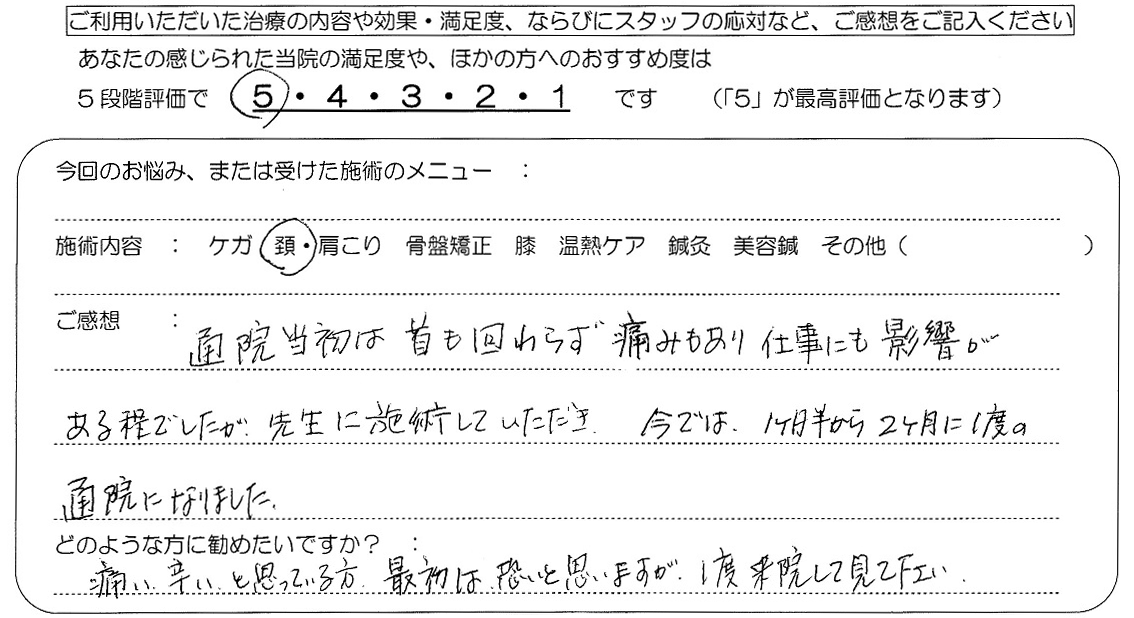 ご利用いただいた治療の内容や効果・満足度、ならびにスタッフの応対など、ご感想をご記入ください
あなたの感じられた当院の満足度や、ほかの方へのおすすめ度は
5段階評価で 5・4・3・2・1 です (「5」が最高評価となります)
今回のお悩み、または受けた施術のメニュー :
施術内容 : ケガ 頚・肩こり 骨盤矯正 膝 温熱ケア 鍼灸 美容鍼 その他( )
ご感想 : 通院当初は首も回わらず痛みもあり仕事にも影響が
ある程でしたが、先生に施術していただき、今では、1ヶ月半から2ヶ月に1度の
通院になりました。
どのような方に勧めたいですか? :
痛い、辛い、と思っている方、最初は、恐いと思いますが、1度来院して見て下さい、